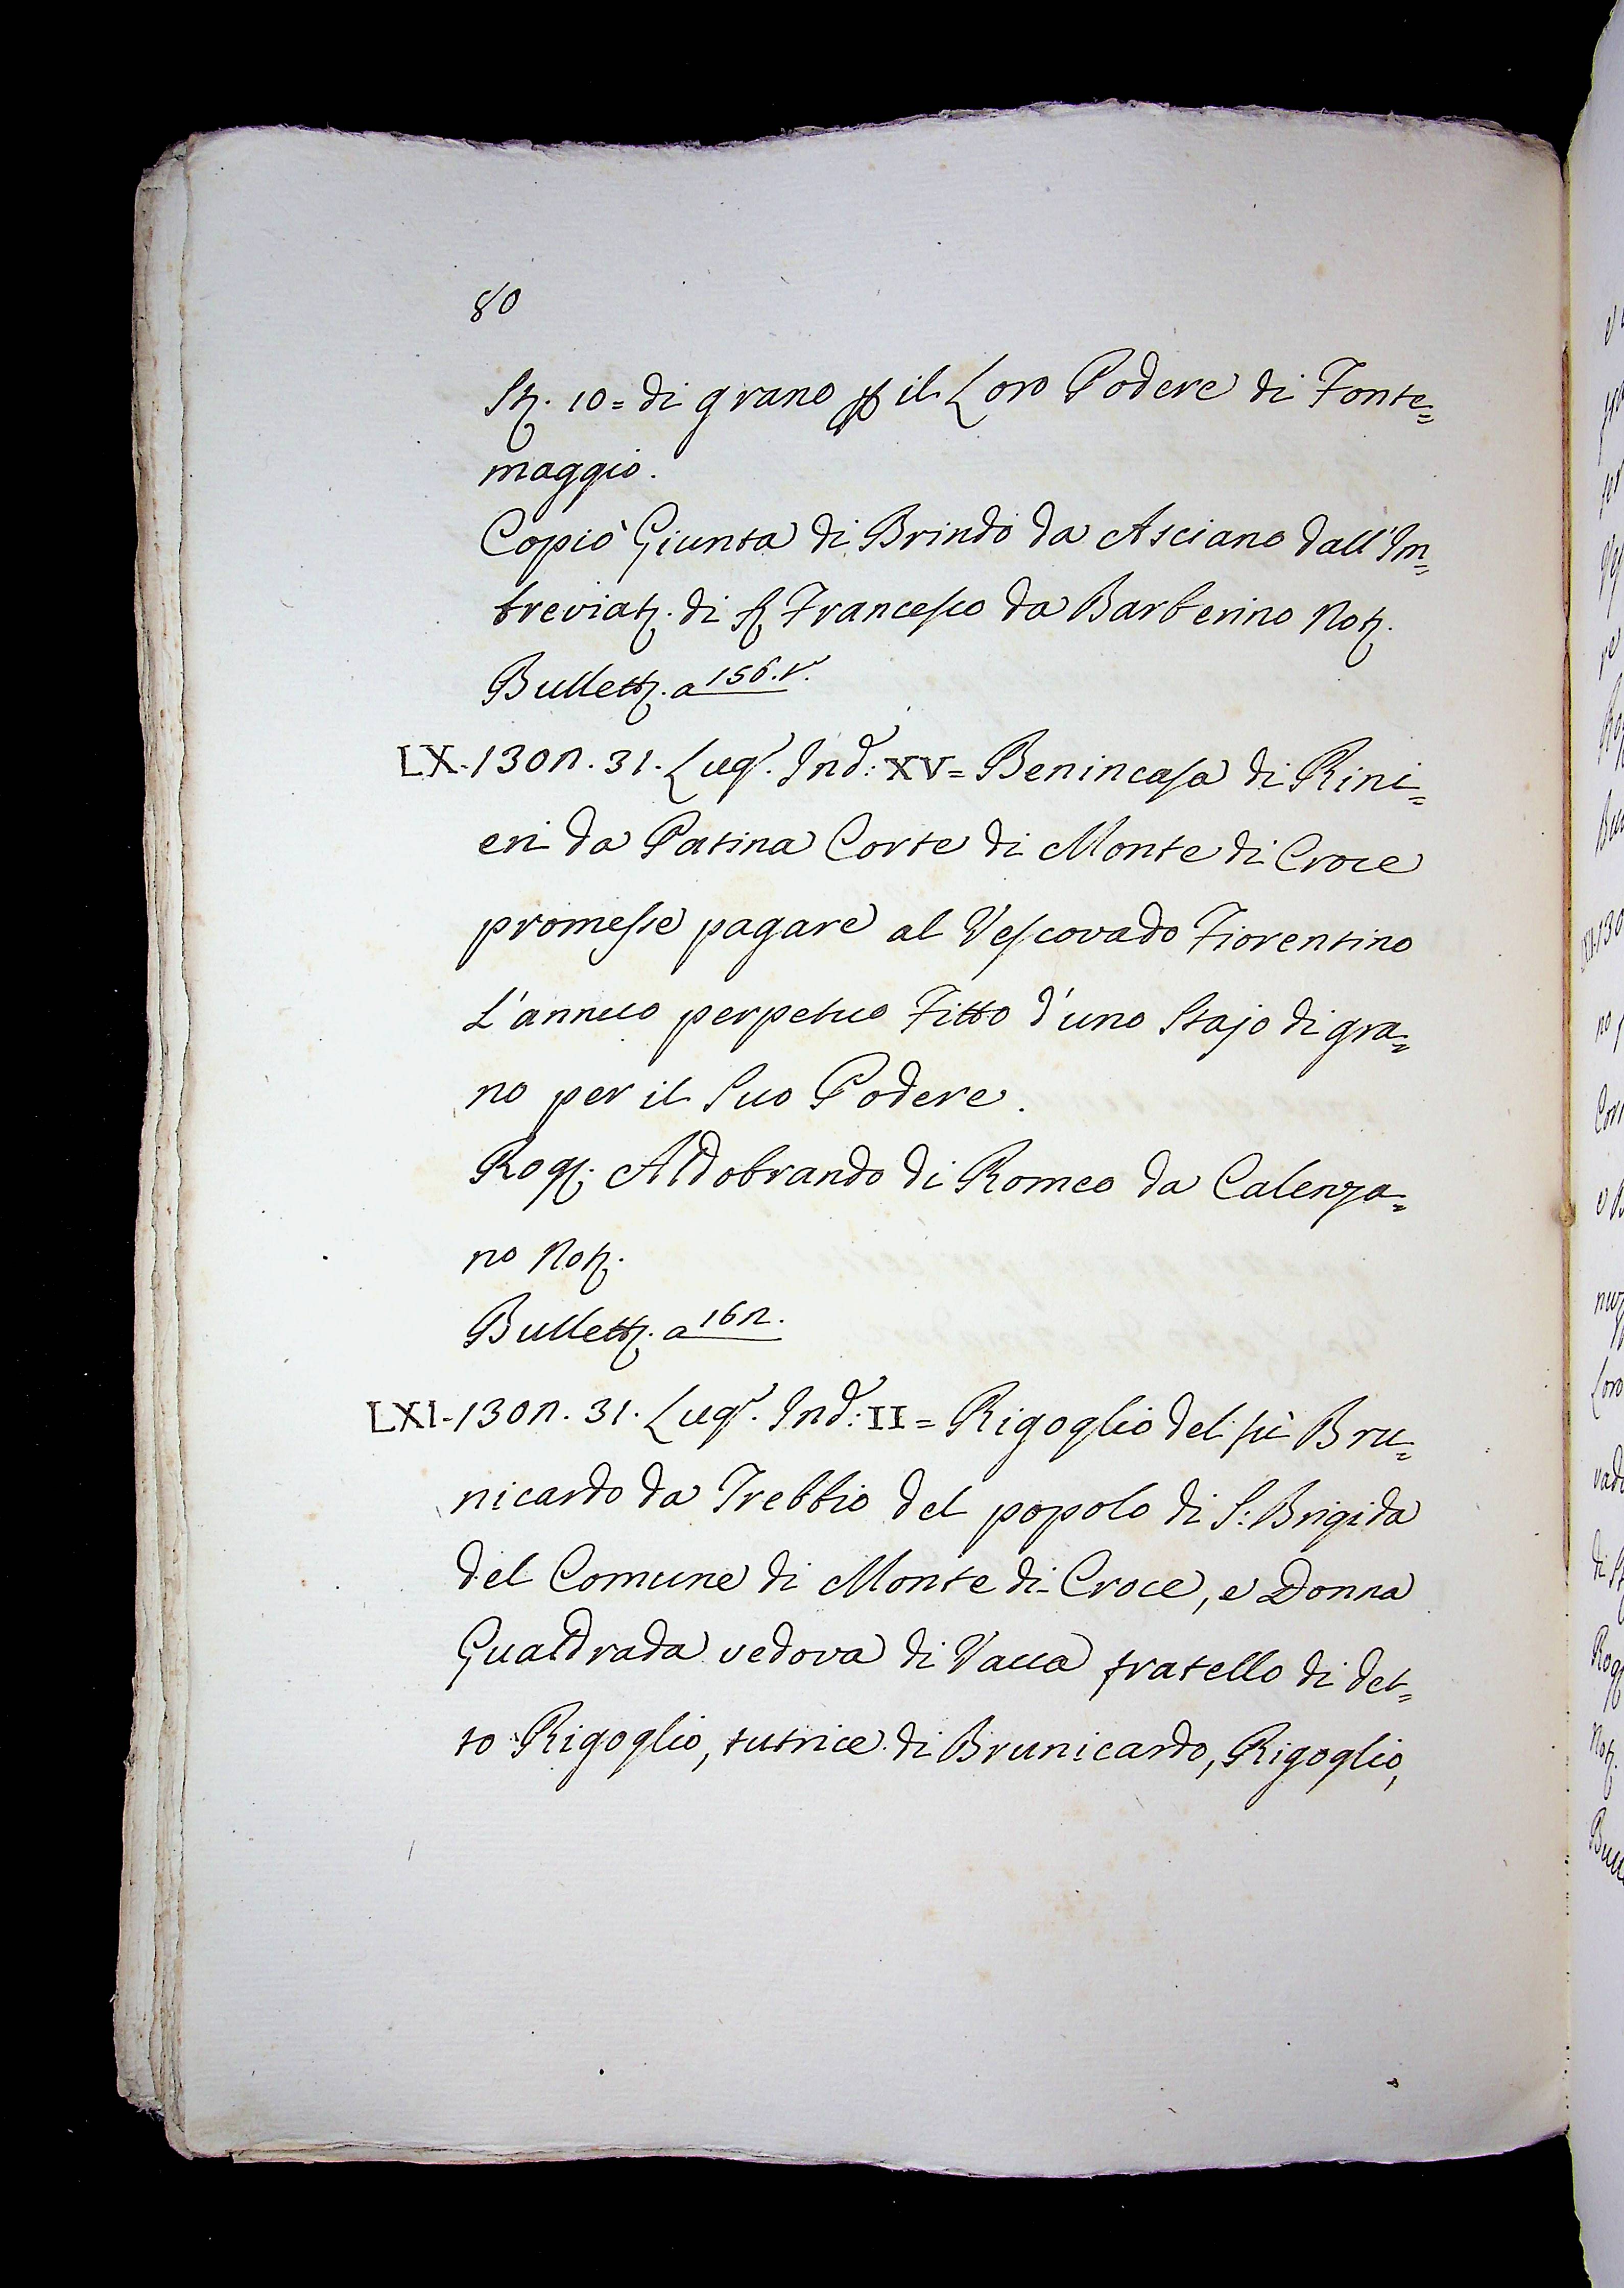 80
Stˢ. 10 = di grano p il Loro Podere di Fonte=
maggio.
Copiò Giunta di Brindo da Asciano dall'Im=
breviatˢ. di Sʳ Francesco da Barberino Notˢ.
Bullettˢ. a 156.vº.
LX. 1302. 31. Lugº. Indº: XV = Benincasa di Rini=
eri da Patina Corte di Monte di Croce
promesse pagare al Vescovado Fiorentino
L'annuo perpetuo Fitto d'uno Stajo di gra=
no per il Suo Podere.
Rogˢ. Aldobrando di Romeo da Calenza=
no Notˢ.
Bullettˢ. a 162.
LXI. 1302. 31. Lugº. Indº: II = Rigoglio del fù Bru=
nicardo da Trebbio del popolo di S: Brigida
del Comune di Monte di Croce, e Donna
Gualdrada vedova di Vacca fratello di det=
to Rigoglio, tutrice di Brunicardo, Rigoglio,